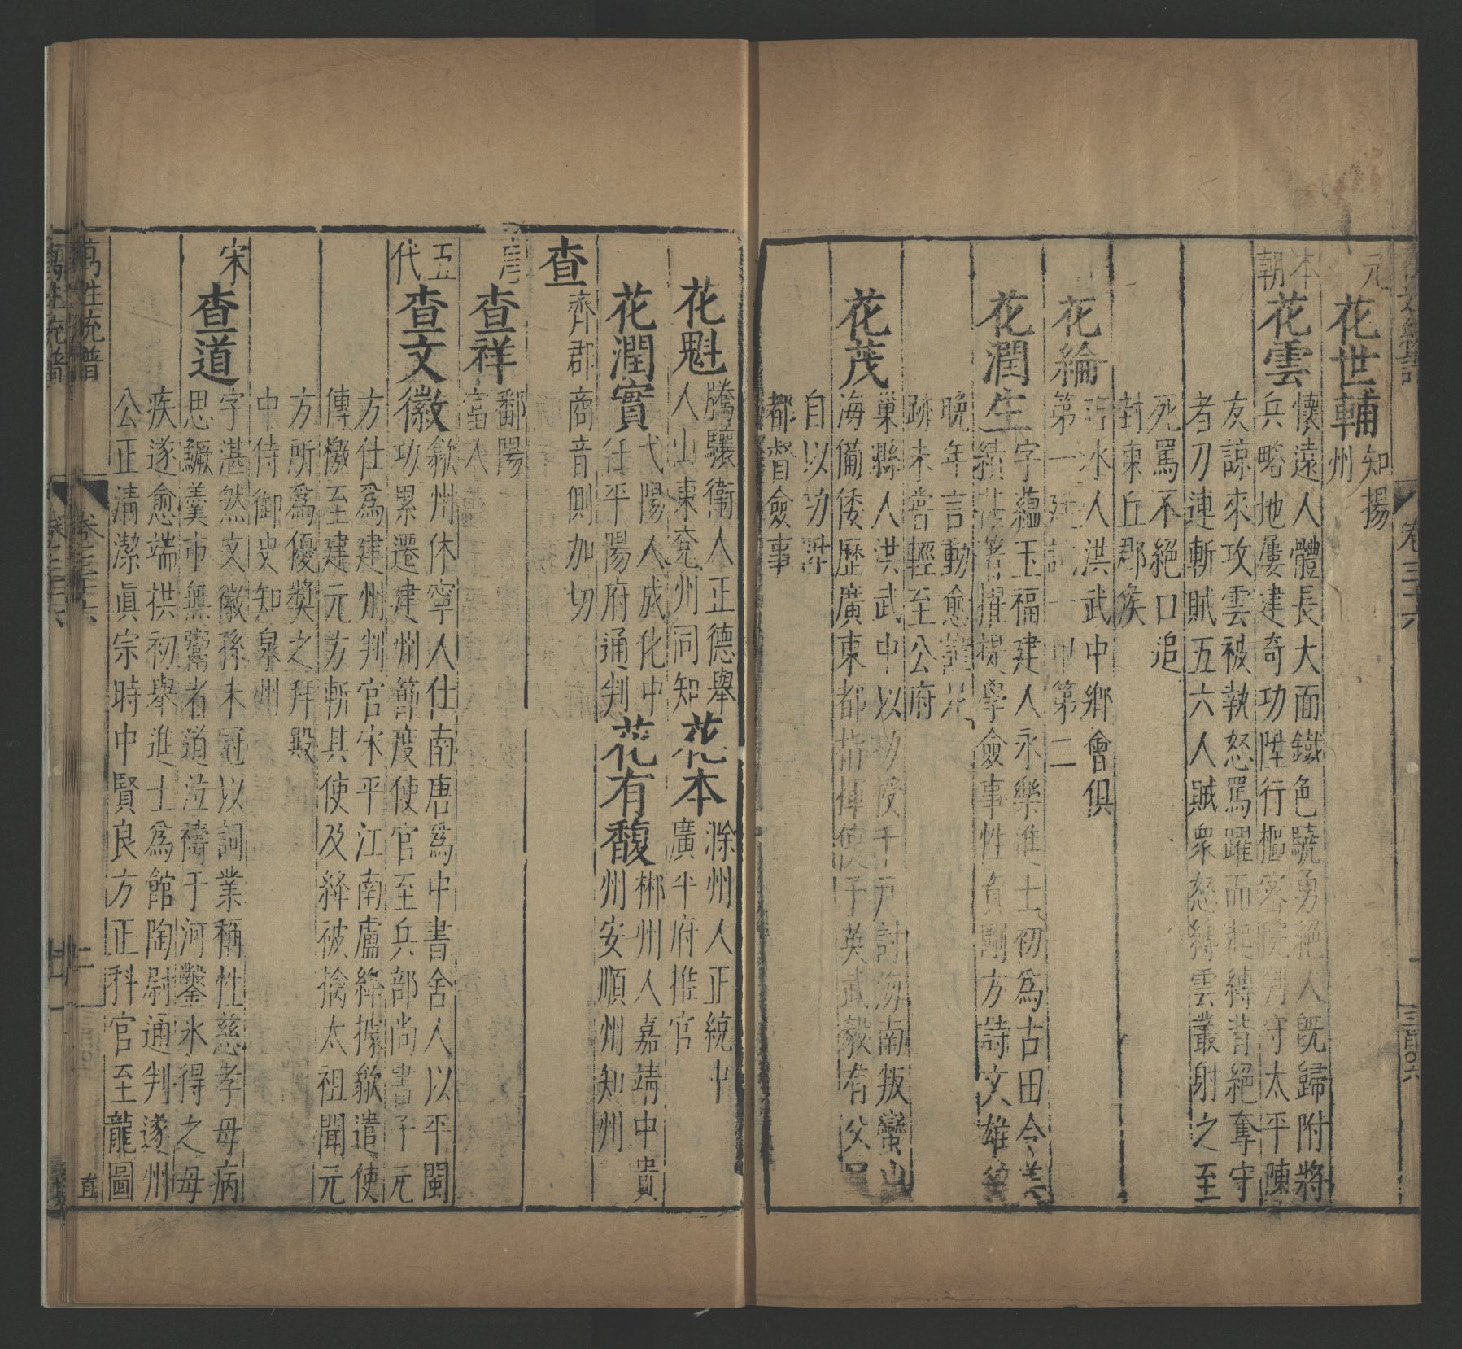 元
花世輔
知揚
州
本
朝
花雲
懷遠人體長大面鐵色驍勇絶人旣歸附將
兵略地屢建奇功陞行樞密院判守太平陳
友諒來攻雲被執怒罵躍而起縛皆絕奪守
者刀連斬賊五六人賊衆怒縛雲叢射之至
死罵不絕口追
封東丘郡矦
花綸
人洪武中鄉會俱
第一
第二
花潤生
字蘊玉福建人永樂進士初為古田令
擢提學僉事性資剛方詩文雄
晚年言動愈
跡未嘗輕至公府
花茂
巢縣人洪武中以功授千戶討海南叛蠻
海備倭歷廣東都指揮使子英武毅有父
自以功陞
都督僉事
花魁
騰驤衛人正德舉
人山東兗州同知
花本
滁州人正統中
廣平府推官
花潤實
弋陽人成化中
任平陽府通判
花有馥
郴州人嘉靖中貴
州安順州知州
查
齊郡商音側加切
唐
查祥
鄱陽
富人
五
代
查文徽
歙州休寧人仕南唐爲中書舍人以平閩
功累遷建州節度使官至兵部尚書子元
方仕爲建州判官宋平江南盧絳據歙遣使
傳檄至建元方斬其使及絳被擒太祖聞元
方所爲優奬之拜殿
中侍御史知泉州
宋
查道
字湛然文徽孫未冠以詞業稱性慈孝母病
思鱖羹市無鬻者道泣禱于河鑿氷得之母
疾遂愈端拱初舉進士爲館陶尉通判遂州
公正清潔眞宗時中賢良方正科官至龍圖
萬姓統譜
卷三十六
二